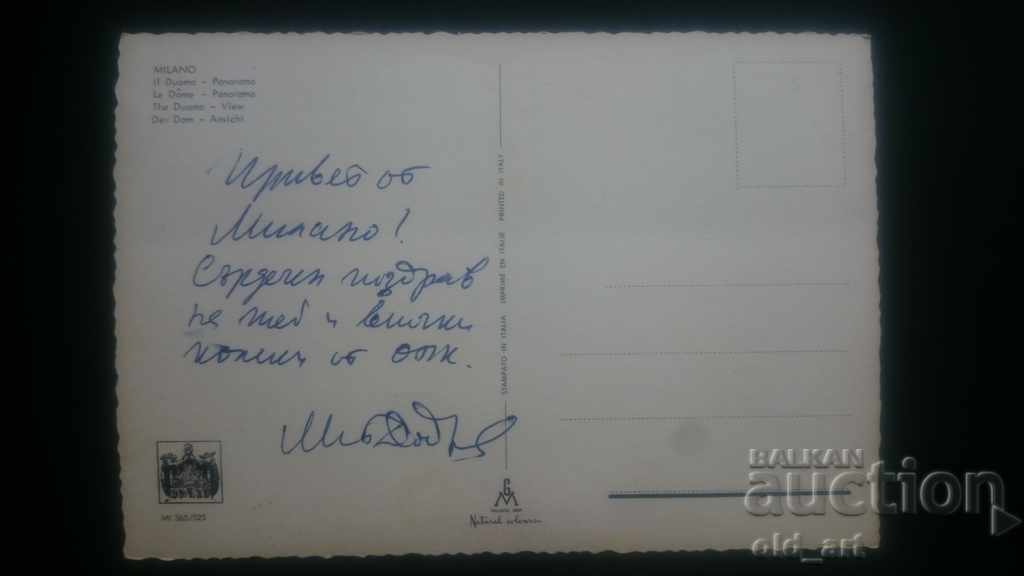 MILANO
Il Duomo - Panorama
Le Dôme - Panorama
The Duomo - View
Der Dom - Ansicht
Привет от
Милано!
Сърдечен поздрав
на теб и всички
колеги от
STAMPATO IN ITALIA IMPRIMÉ EN ITALIE PRINTED IN ITALY
MI 365/525
GM
Natural colours
BALKAN
auction
old_art